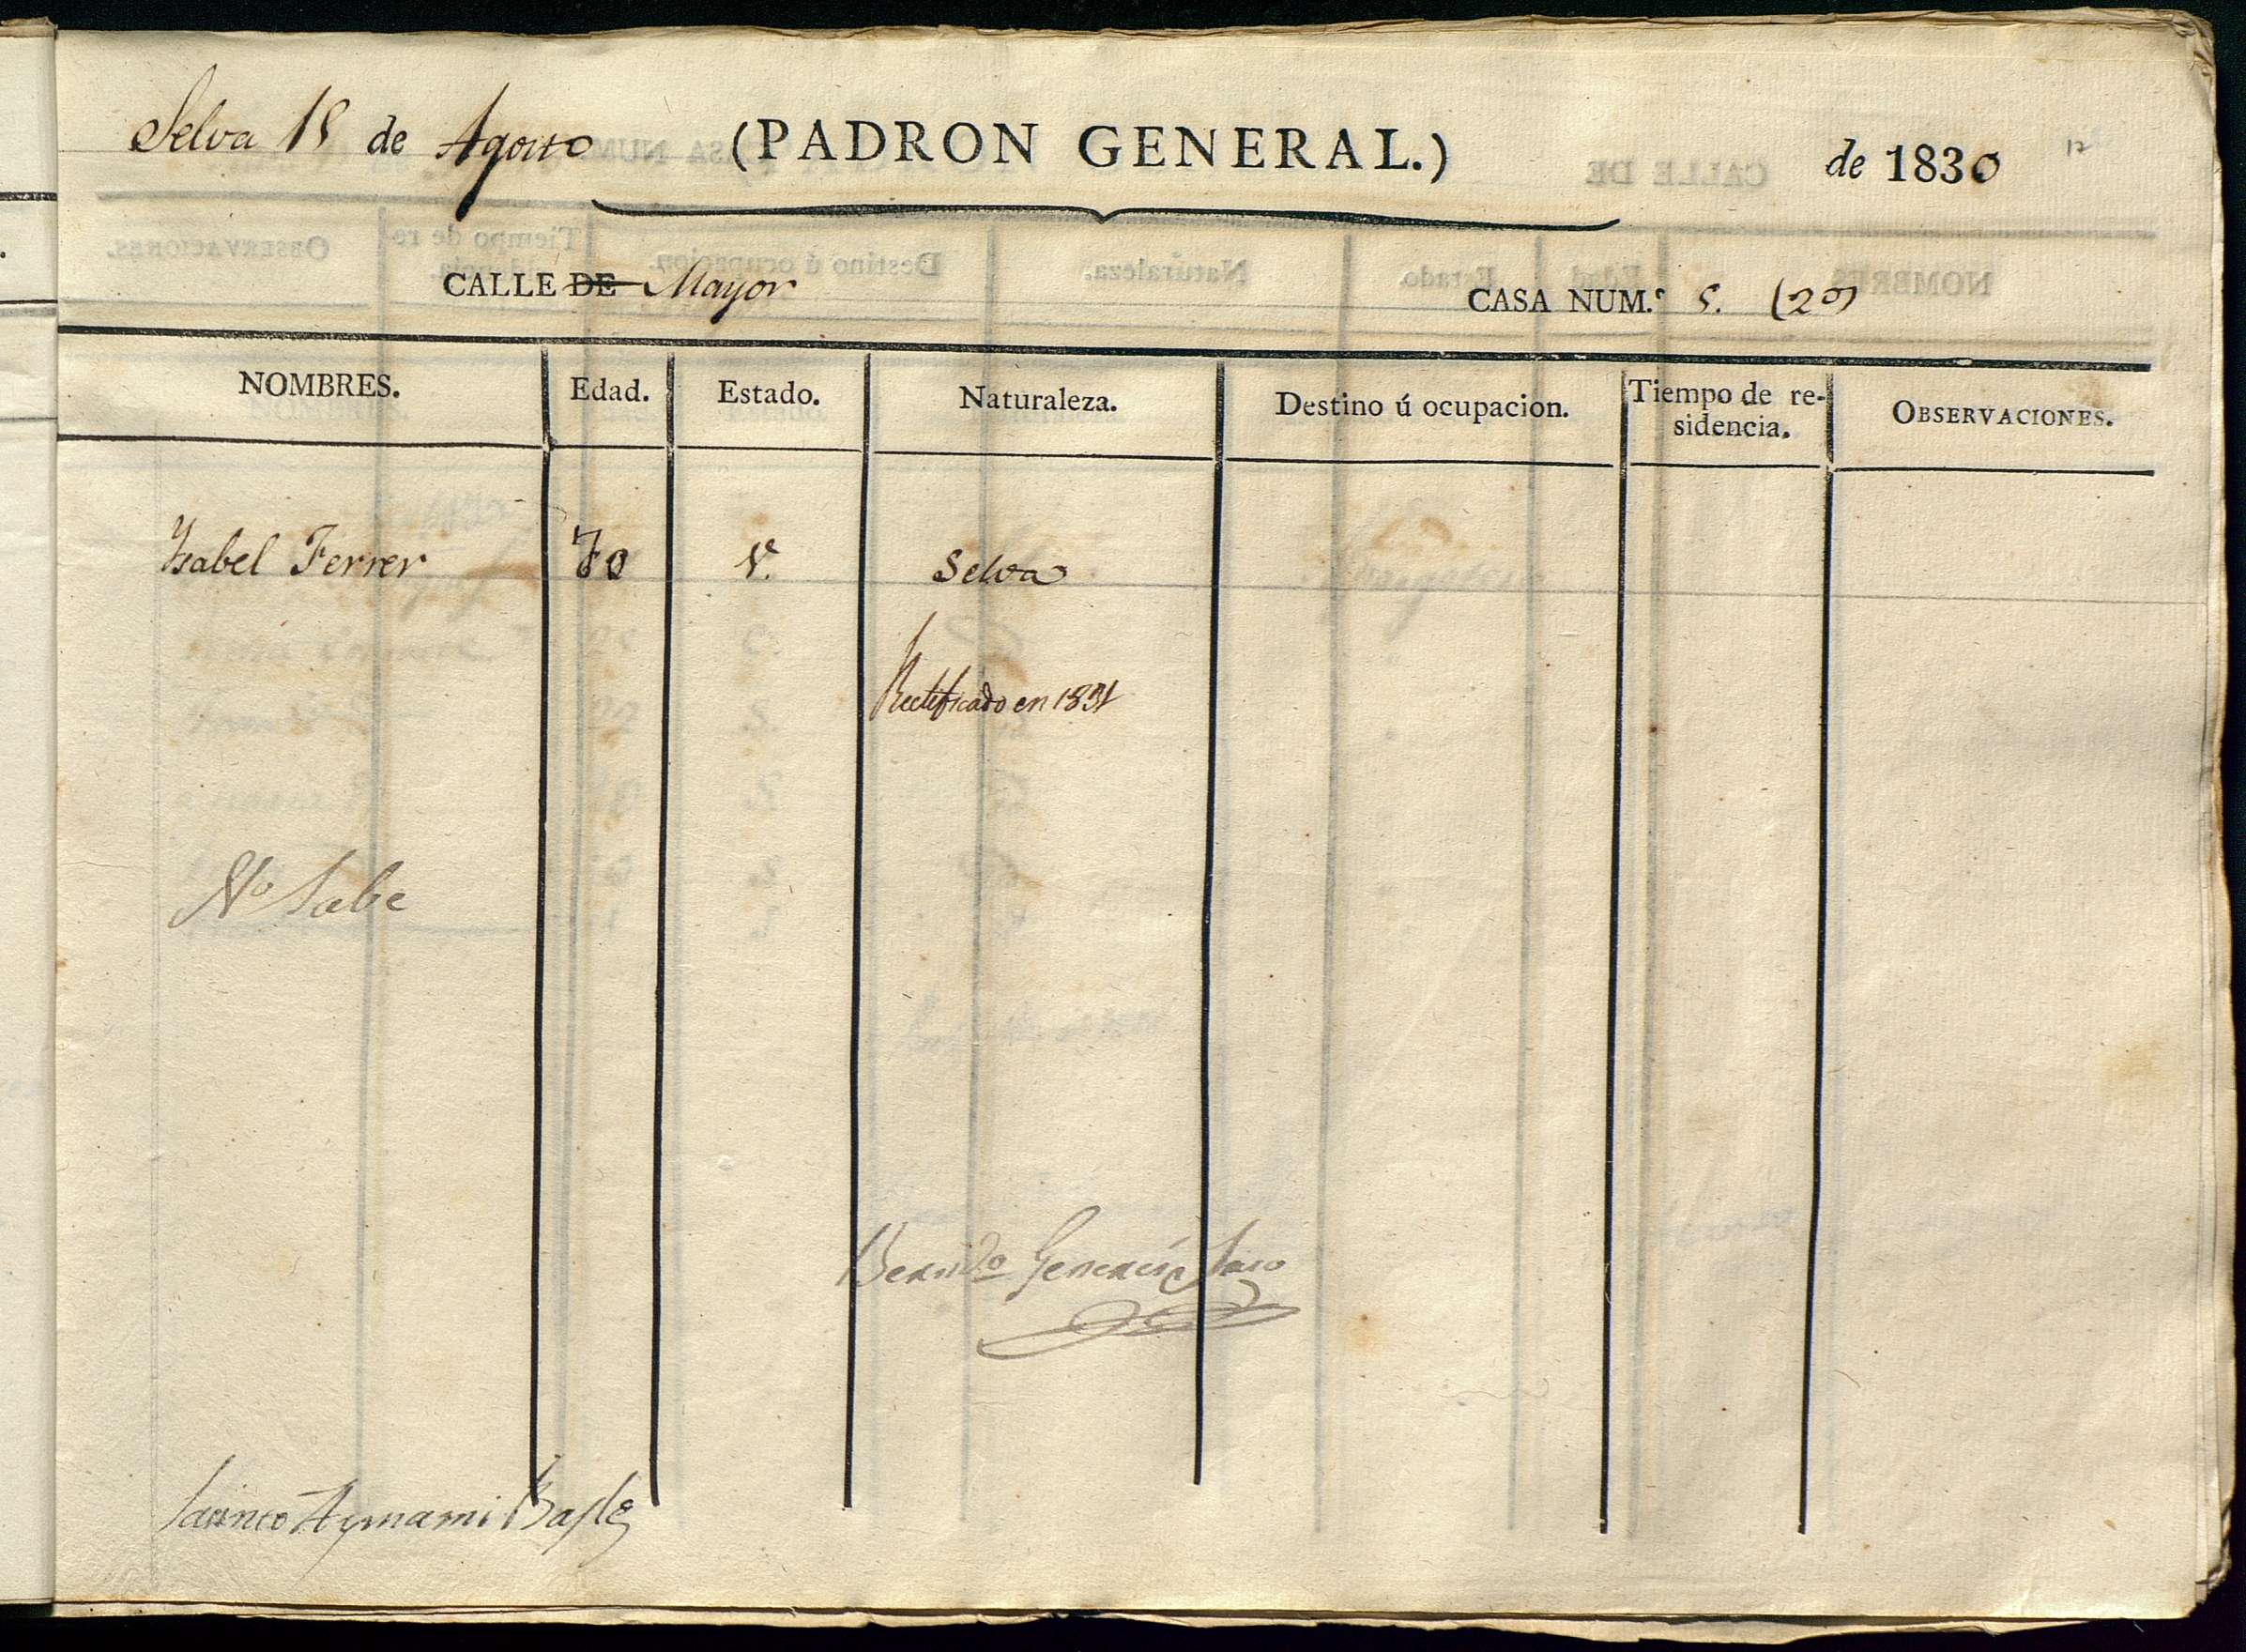 Selva 15 de Agosto (PADRON GENERAL.) de 1830 12
CALLE DE Mayor CASA NUM.º 5. (2º)
NOMBRES. Edad. Estado. Naturaleza. Destino ú ocupacion. Tiempo de re- OBSERVACIONES.
sidencia.
Ysabel Ferrer 70 Vª. Selva
Rectificado en 1831
No Sabe
Jacinto Aymami Bayle